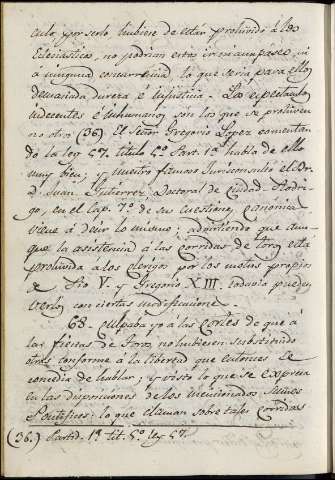 culo, por serlo hubiese de estar prohivido á los
Eclesiasticos, no podrian estos ir ni aun paseo ni
á ninguna concurrencia, lo que seria para ellos
demasiada dureza é injusticia. Los espectaculos
indecentes é inhumanos son los que se prohiven
no otro (36) El Señor Gregorio Lopez comentan
do la ley 57. titulo 5º Part. 1ª habla de ello
muy bien; y nuestro famoso Jurisconsulto el Dr.
Dn. Juan Gutierrez Doctoral de Ciudad Rodri-
go, en el Cap. 7º de sus Cuestiones canonicas
viene á decir lo mismo; advirtiendo que aun-
que la asistencia á las corridas de toros está
prohivida a los clerigos por los motus propios
de Pio V. y Gregorio XIII. todavia pueden
verlos con ciertas modificaciones.
68. Culpaba yo á las Cortes de que á
las fiestas de Toros no hubiesen substituido
otras conforme á la libertad que entonces le
concedia de hablar; y visto lo que se expresa
en las disposiciones de los mencionados Sumos
Pontifices: lo que claman sobre tales corridas
(36.) Partid. 1ª tit. 5º ley 57.